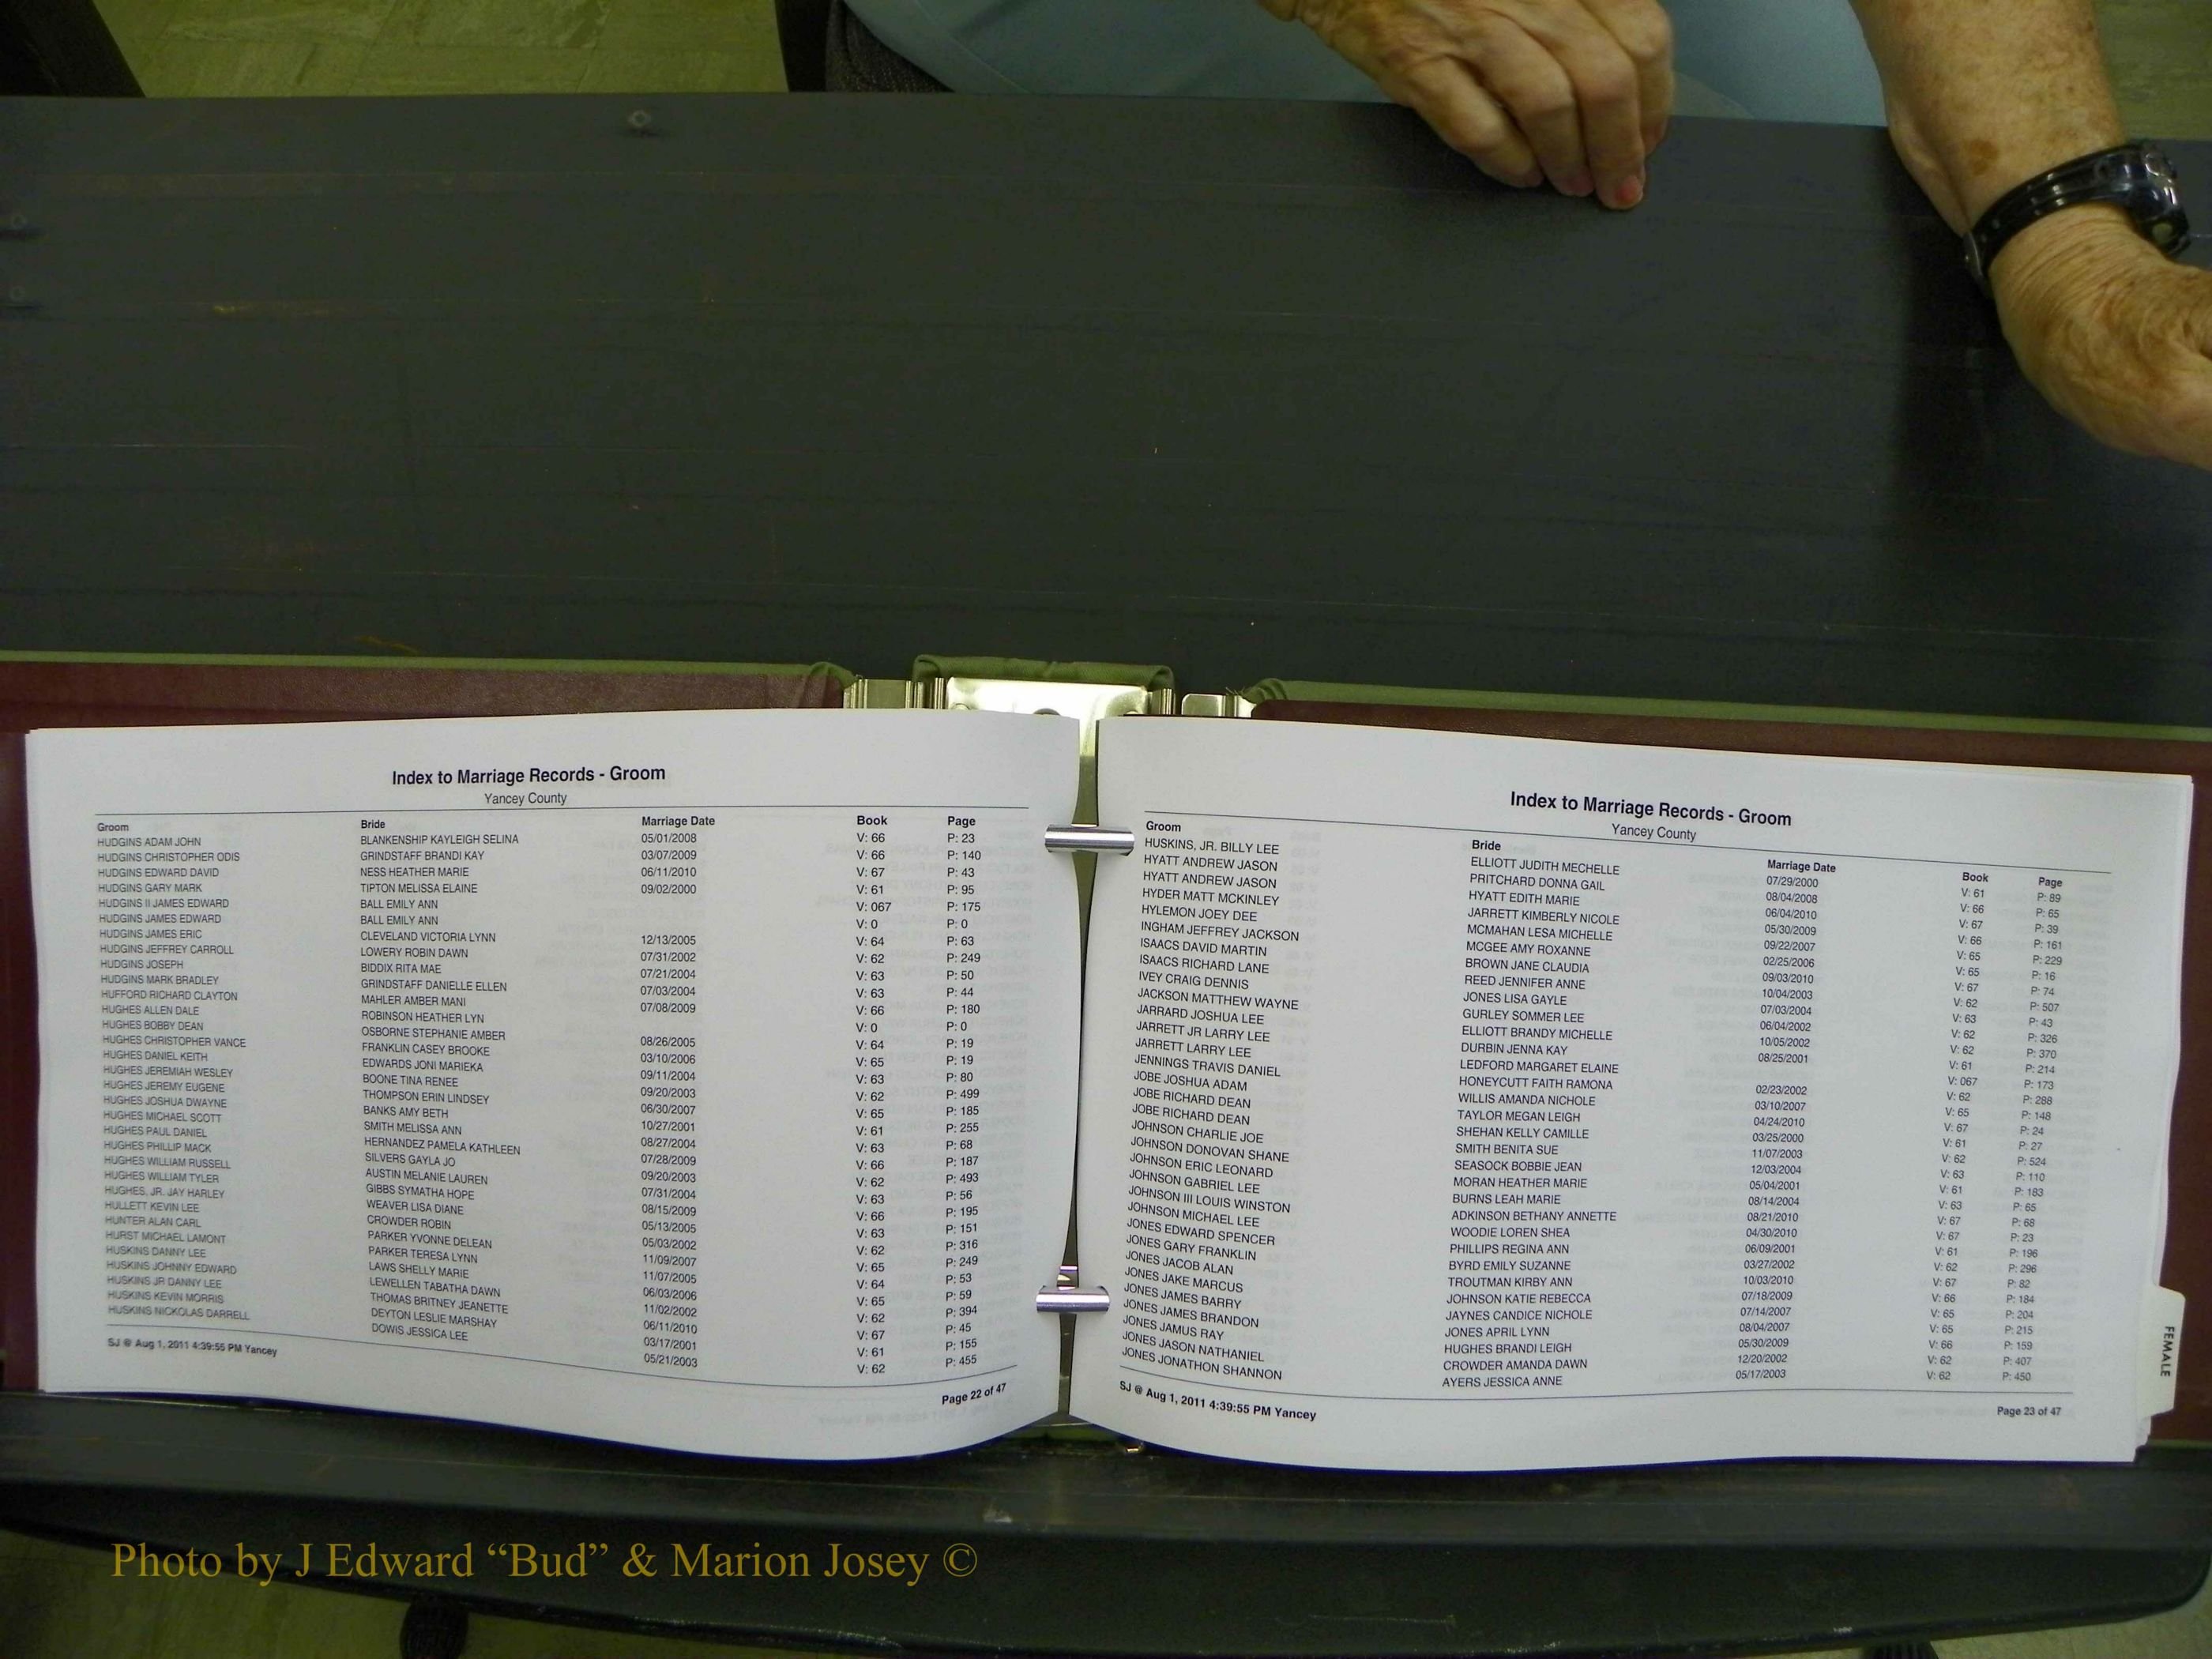 Index to Marriage Records - Groom
Yancey County
Groom Bride Marriage Date Book Page
HUDGINS ADAM JOHN BLANKENSHIP KAYLEIGH SELINA 05/01/2008 V: 66 P: 23
HUDGINS CHRISTOPHER ODIS GRINDSTAFF BRANDI KAY 03/07/2009 V: 66 P: 140
HUDGINS EDWARD DAVID NESS HEATHER MARIE 06/11/2010 V: 67 P: 43
HUDGINS GARY MARK TIPTON MELISSA ELAINE 09/02/2000 V: 61 P: 95
HUDGINS II JAMES EDWARD BALL EMILY ANN V: 067 P: 175
HUDGINS JAMES EDWARD BALL EMILY ANN V: 0 P: 0
HUDGINS JAMES ERIC CLEVELAND VICTORIA LYNN 12/13/2005 V: 64 P: 63
HUDGINS JEFFREY CARROLL LOWERY ROBIN DAWN 07/31/2002 V: 62 P: 249
HUDGINS JOSEPH BIDDIX RITA MAE 07/21/2004 V: 63 P: 50
HUDGINS MARK BRADLEY GRINDSTAFF DANIELLE ELLEN 07/03/2004 V: 63 P: 44
HUFFORD RICHARD CLAYTON MAHLER AMBER MANI 07/08/2009 V: 66 P: 180
HUGHES ALLEN DALE ROBINSON HEATHER LYN V: 0 P: 0
HUGHES BOBBY DEAN OSBORNE STEPHANIE AMBER 08/26/2005 V: 64 P: 19
HUGHES CHRISTOPHER VANCE FRANKLIN CASEY BROOKE 03/10/2006 V: 65 P: 19
HUGHES DANIEL KEITH EDWARDS JONI MARIEKA 09/11/2004 V: 63 P: 80
HUGHES JEREMIAH WESLEY BOONE TINA RENEE 09/20/2003 V: 62 P: 499
HUGHES JEREMY EUGENE THOMPSON ERIN LINDSEY 06/30/2007 V: 65 P: 185
HUGHES JOSHUA DWAYNE BANKS AMY BETH 10/27/2001 V: 61 P: 255
HUGHES MICHAEL SCOTT SMITH MELISSA ANN 08/27/2004 V: 63 P: 68
HUGHES PAUL DANIEL HERNANDEZ PAMELA KATHLEEN 07/28/2009 V: 66 P: 187
HUGHES PHILLIP MACK SILVERS GAYLA JO 09/20/2003 V: 62 P: 493
HUGHES WILLIAM RUSSELL AUSTIN MELANIE LAUREN 07/31/2004 V: 63 P: 56
HUGHES WILLIAM TYLER GIBBS SYMATHA HOPE 08/15/2009 V: 66 P: 195
HUGHES, JR. JAY HARLEY WEAVER LISA DIANE 05/13/2005 V: 63 P: 151
HULLETT KEVIN LEE CROWDER ROBIN 05/03/2002 V: 62 P: 316
HUNTER ALAN CARL PARKER YVONNE DELEAN 11/09/2007 V: 65 P: 249
HURST MICHAEL LAMONT PARKER TERESA LYNN 11/07/2005 V: 64 P: 53
HUSKINS DANNY LEE LAWS SHELLY MARIE 06/03/2006 V: 65 P: 59
HUSKINS JOHNNY EDWARD LEWELLEN TABATHA DAWN 11/02/2002 V: 62 P: 394
HUSKINS JR DANNY LEE THOMAS BRITNEY JEANETTE 06/11/2010 V: 67 P: 45
HUSKINS KEVIN MORRIS DEYTON LESLIE MARSHAY 03/17/2001 V: 61 P: 155
HUSKINS NICKOLAS DARRELL DOWIS JESSICA LEE 05/21/2003 V: 62 P: 455
SJ @ Aug 1, 2011 4:39:55 PM Yancey Page 22 of 47
Index to Marriage Records - Groom
Yancey County
Groom Bride Marriage Date Book Page
HUSKINS, JR. BILLY LEE ELLIOTT JUDITH MECHELLE 07/29/2000 V: 61 P: 89
HYATT ANDREW JASON PRITCHARD DONNA GAIL 08/04/2008 V: 66 P: 65
HYATT ANDREW JASON HYATT EDITH MARIE 06/04/2010 V: 67 P: 39
HYDER MATT MCKINLEY JARRETT KIMBERLY NICOLE 05/30/2009 V: 66 P: 161
HYLEMON JOEY DEE MCMAHAN LESA MICHELLE 09/22/2007 V: 65 P: 229
INGHAM JEFFREY JACKSON MCGEE AMY ROXANNE 02/25/2006 V: 65 P: 16
ISAACS DAVID MARTIN BROWN JANE CLAUDIA 09/03/2010 V: 67 P: 74
ISAACS RICHARD LANE REED JENNIFER ANNE 10/04/2003 V: 62 P: 507
IVEY CRAIG DENNIS JONES LISA GAYLE 07/03/2004 V: 63 P: 43
JACKSON MATTHEW WAYNE GURLEY SOMMER LEE 06/04/2002 V: 62 P: 326
JARRARD JOSHUA LEE ELLIOTT BRANDY MICHELLE 10/05/2002 V: 62 P: 370
JARRETT JR LARRY LEE DURBIN JENNA KAY 08/25/2001 V: 61 P: 214
JARRETT LARRY LEE LEDFORD MARGARET ELAINE V: 067 P: 173
JENNINGS TRAVIS DANIEL HONEYCUTT FAITH RAMONA 02/23/2002 V: 62 P: 288
JOBE JOSHUA ADAM WILLIS AMANDA NICHOLE 03/10/2007 V: 65 P: 148
JOBE RICHARD DEAN TAYLOR MEGAN LEIGH 04/24/2010 V: 67 P: 24
JOBE RICHARD DEAN SHEHAN KELLY CAMILLE 03/25/2000 V: 61 P: 27
JOHNSON CHARLIE JOE SMITH BENITA SUE 11/07/2003 V: 62 P: 524
JOHNSON DONOVAN SHANE SEASOCK BOBBIE JEAN 12/03/2004 V: 63 P: 110
JOHNSON ERIC LEONARD MORAN HEATHER MARIE 05/04/2001 V: 61 P: 183
JOHNSON GABRIEL LEE BURNS LEAH MARIE 08/14/2004 V: 63 P: 65
JOHNSON III LOUIS WINSTON ADKINSON BETHANY ANNETTE 08/21/2010 V: 67 P: 68
JOHNSON MICHAEL LEE WOODIE LOREN SHEA 04/30/2010 V: 67 P: 23
JONES EDWARD SPENCER PHILLIPS REGINA ANN 06/09/2001 V: 61 P: 196
JONES GARY FRANKLIN BYRD EMILY SUZANNE 03/27/2002 V: 62 P: 296
JONES JACOB ALAN TROUTMAN KIRBY ANN 10/03/2010 V: 67 P: 82
JONES JAKE MARCUS JOHNSON KATIE REBECCA 07/18/2009 V: 66 P: 184
JONES JAMES BARRY JAYNES CANDICE NICHOLE 07/14/2007 V: 65 P: 204
JONES JAMES BRANDON JONES APRIL LYNN 08/04/2007 V: 65 P: 215
JONES JAMUS RAY HUGHES BRANDI LEIGH 05/30/2009 V: 66 P: 159
JONES JASON NATHANIEL CROWDER AMANDA DAWN 12/20/2002 V: 62 P: 407
JONES JONATHON SHANNON AYERS JESSICA ANNE 05/17/2003 V: 62 P: 450
SJ @ Aug 1, 2011 4:39:55 PM Yancey Page 23 of 47
FEMALE
Photo by J Edward “Bud” & Marion Josey ©